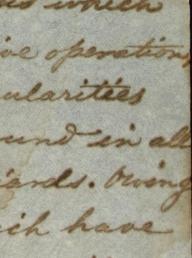 which
operations
ularities
ound in all
ards. Owing
ich have